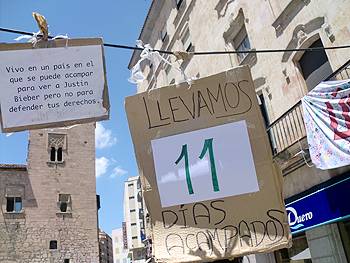 Vivo en un pais en el
que se puede acampar
para ver a Justin
Bieber pero no para
defender tus derechos.
LLEVAMOS
11
DÍAS
ACAMPADOS
Duero